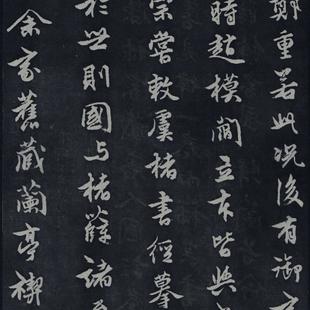 鄭重若此況後有御
時趙模閻立本皆與
宗嘗敕虞褚書徑摹
於世則國与褚薛諸
余家舊藏蘭亭禊